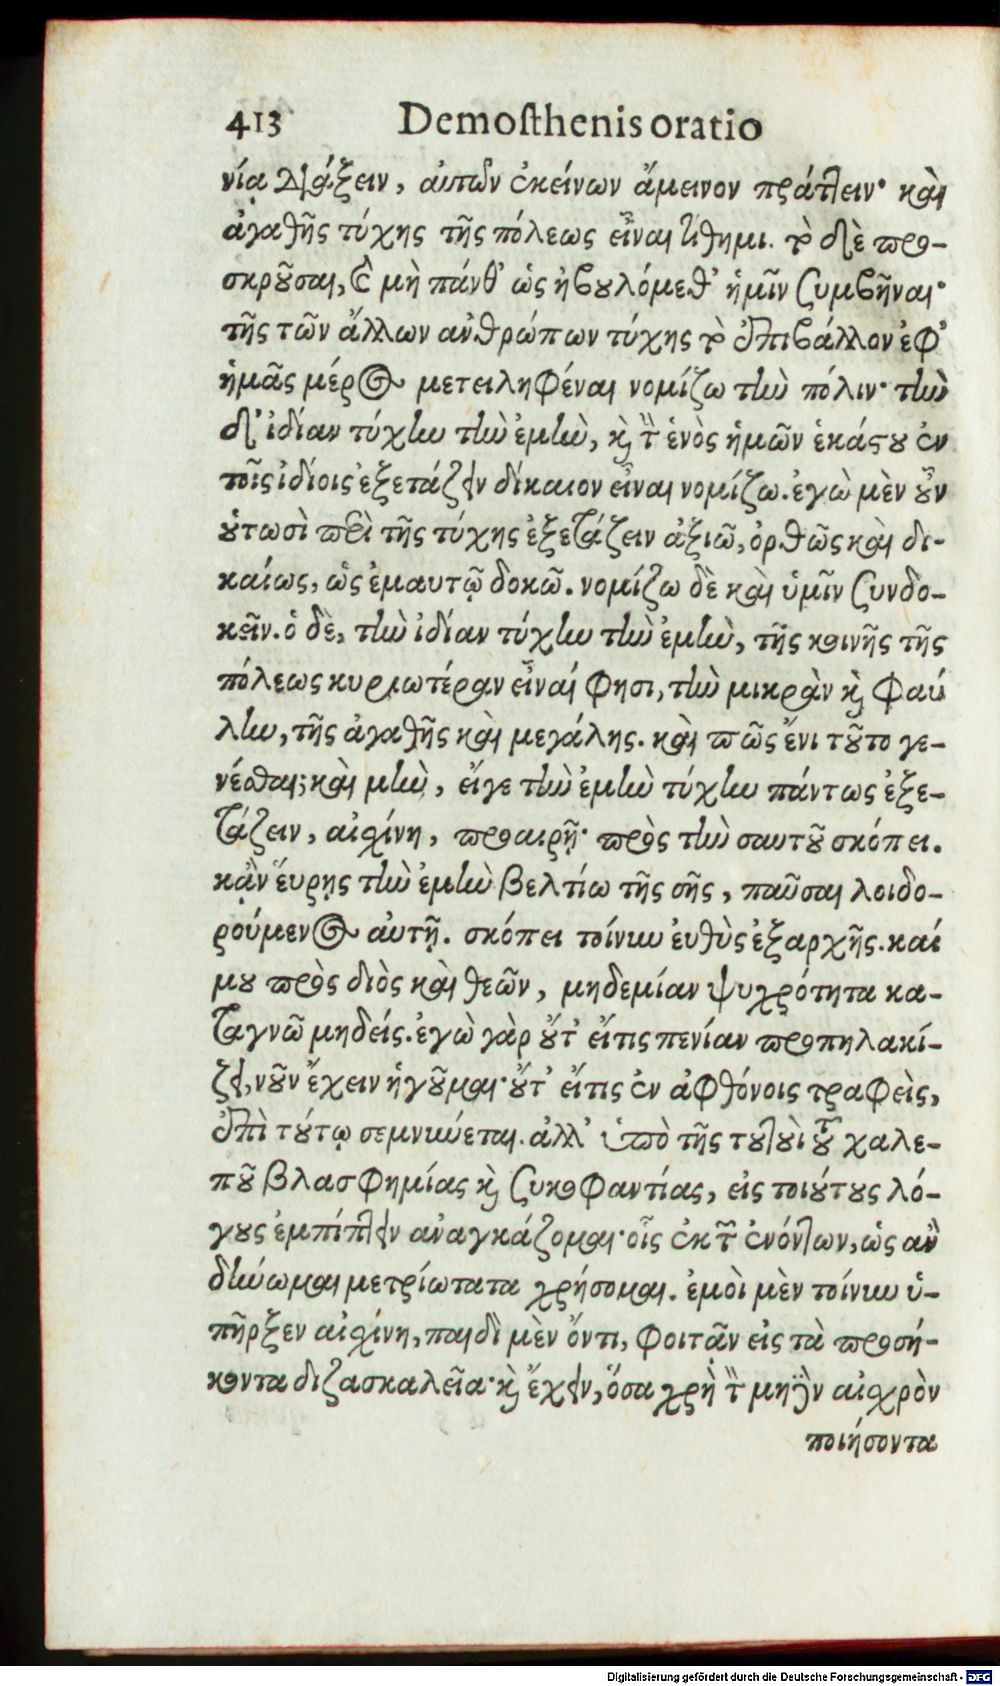 413 Demosthenis oratio
νίᾳ διάξειν, αὐτῶν ἐκείνων ἄμεινον πράττειν· καὶ
ἀγαθῆς τύχης τῆς πόλεως εἶναι τίθημι. τὸ δὲ προ-
σκροῦσαι, καὶ μὴ πάνθ' ὡς ἠβουλόμεθ' ἡμῖν συμβῆναι·
τῆς τῶν ἄλλων ἀνθρώπων τύχης τὸ ἐπιβάλλον ἐφ'
ἡμᾶς μέρος μετειληφέναι νομίζω τὴν πόλιν· τὴν
δ' ἰδίαν τύχην τὴν ἐμὴν, καὶ τὴν ἑνὸς ἡμῶν ἑκάστου ἐν
τοῖς ἰδίοις ἐξετάζειν δίκαιον εἶναι νομίζω. ἐγὼ μὲν οὖν
οὑτωσὶ περὶ τῆς τύχης ἐξετάζειν ἀξιῶ, ὀρθῶς καὶ δι-
καίως, ὡς ἐμαυτῷ δοκῶ. νομίζω δὲ καὶ ὑμῖν συνδο-
κεῖν. ὁ δὲ, τὴν ἰδίαν τύχην τὴν ἐμὴν, τῆς κοινῆς τῆς
πόλεως κυριωτέραν εἶναί φησι, τὴν μικρὰν καὶ φαύ
λην, τῆς ἀγαθῆς καὶ μεγάλης. καὶ πῶς ἔνι τοῦτο γε-
νέσθαι; καὶ μὴν, εἴγε τὴν ἐμὴν τύχην πάντως ἐξε-
τάζειν, αἰσχίνη, προαιρῇ· πρὸς τὴν σαυτοῦ σκόπει.
κᾂν εὕρῃς τὴν ἐμὴν βελτίω τῆς σῆς, παῦσαι λοιδο-
ρούμενος αὐτῇ. σκόπει τοίνυν εὐθὺς ἐξαρχῆς. καί
μου πρὸς διὸς καὶ θεῶν, μηδεμίαν ψυχρότητα κα-
ταγνῶ μηδείς. ἐγὼ γὰρ οὔτ' εἴτις πενίαν προπηλακί-
ζει, νοῦν ἔχειν ἡγοῦμαι· οὔτ' εἴτις ἐν ἀφθόνοις τραφεὶς,
ἐπὶ τούτῳ σεμνύνεται. ἀλλ' ὑπὸ τῆς τουτουὶ τοῦ χαλε-
ποῦ βλασφημίας καὶ συκοφαντίας, εἰς τοιούτους λό-
γους ἐμπίπτειν ἀναγκάζομαι· οἷς ἐκ τῶν ἐνόντων, ὡς ἂν
δύνωμαι μετριώτατα χρήσομαι. ἐμοὶ μὲν τοίνυν ὑ-
πῆρξεν αἰσχίνη, παιδὶ μὲν ὄντι, φοιτᾶν εἰς τὰ προσή-
κοντα διδασκαλεῖα· καὶ ἔχειν, ὅσα χρὴ τὸν μηδὲν αἰσχρὸν
ποιήσοντα
Digitalisierung gefördert durch die Deutsche Forschungsgemeinschaft - DFG